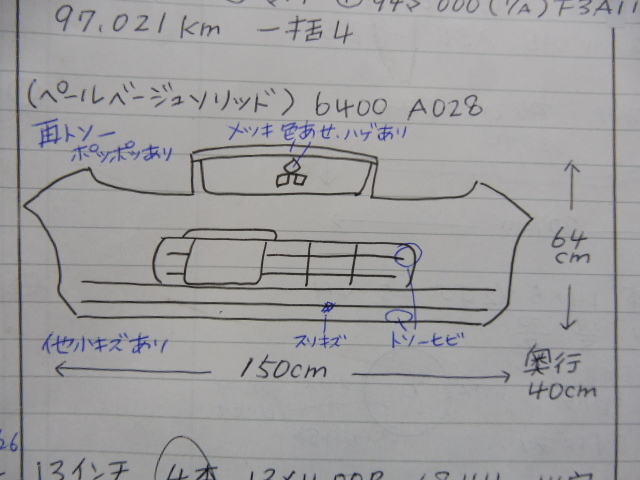 000 (1/A) F3A11
97.021km 一括4
(ペールベージュソリッド) 6400 A028
再トソー
ポツポツあり
メッキ 色あせ.ハゲあり
64
cm
他小キズあり
スリキズ
トソーヒビ
150cm
奥行
40cm
26
13インチ 4本